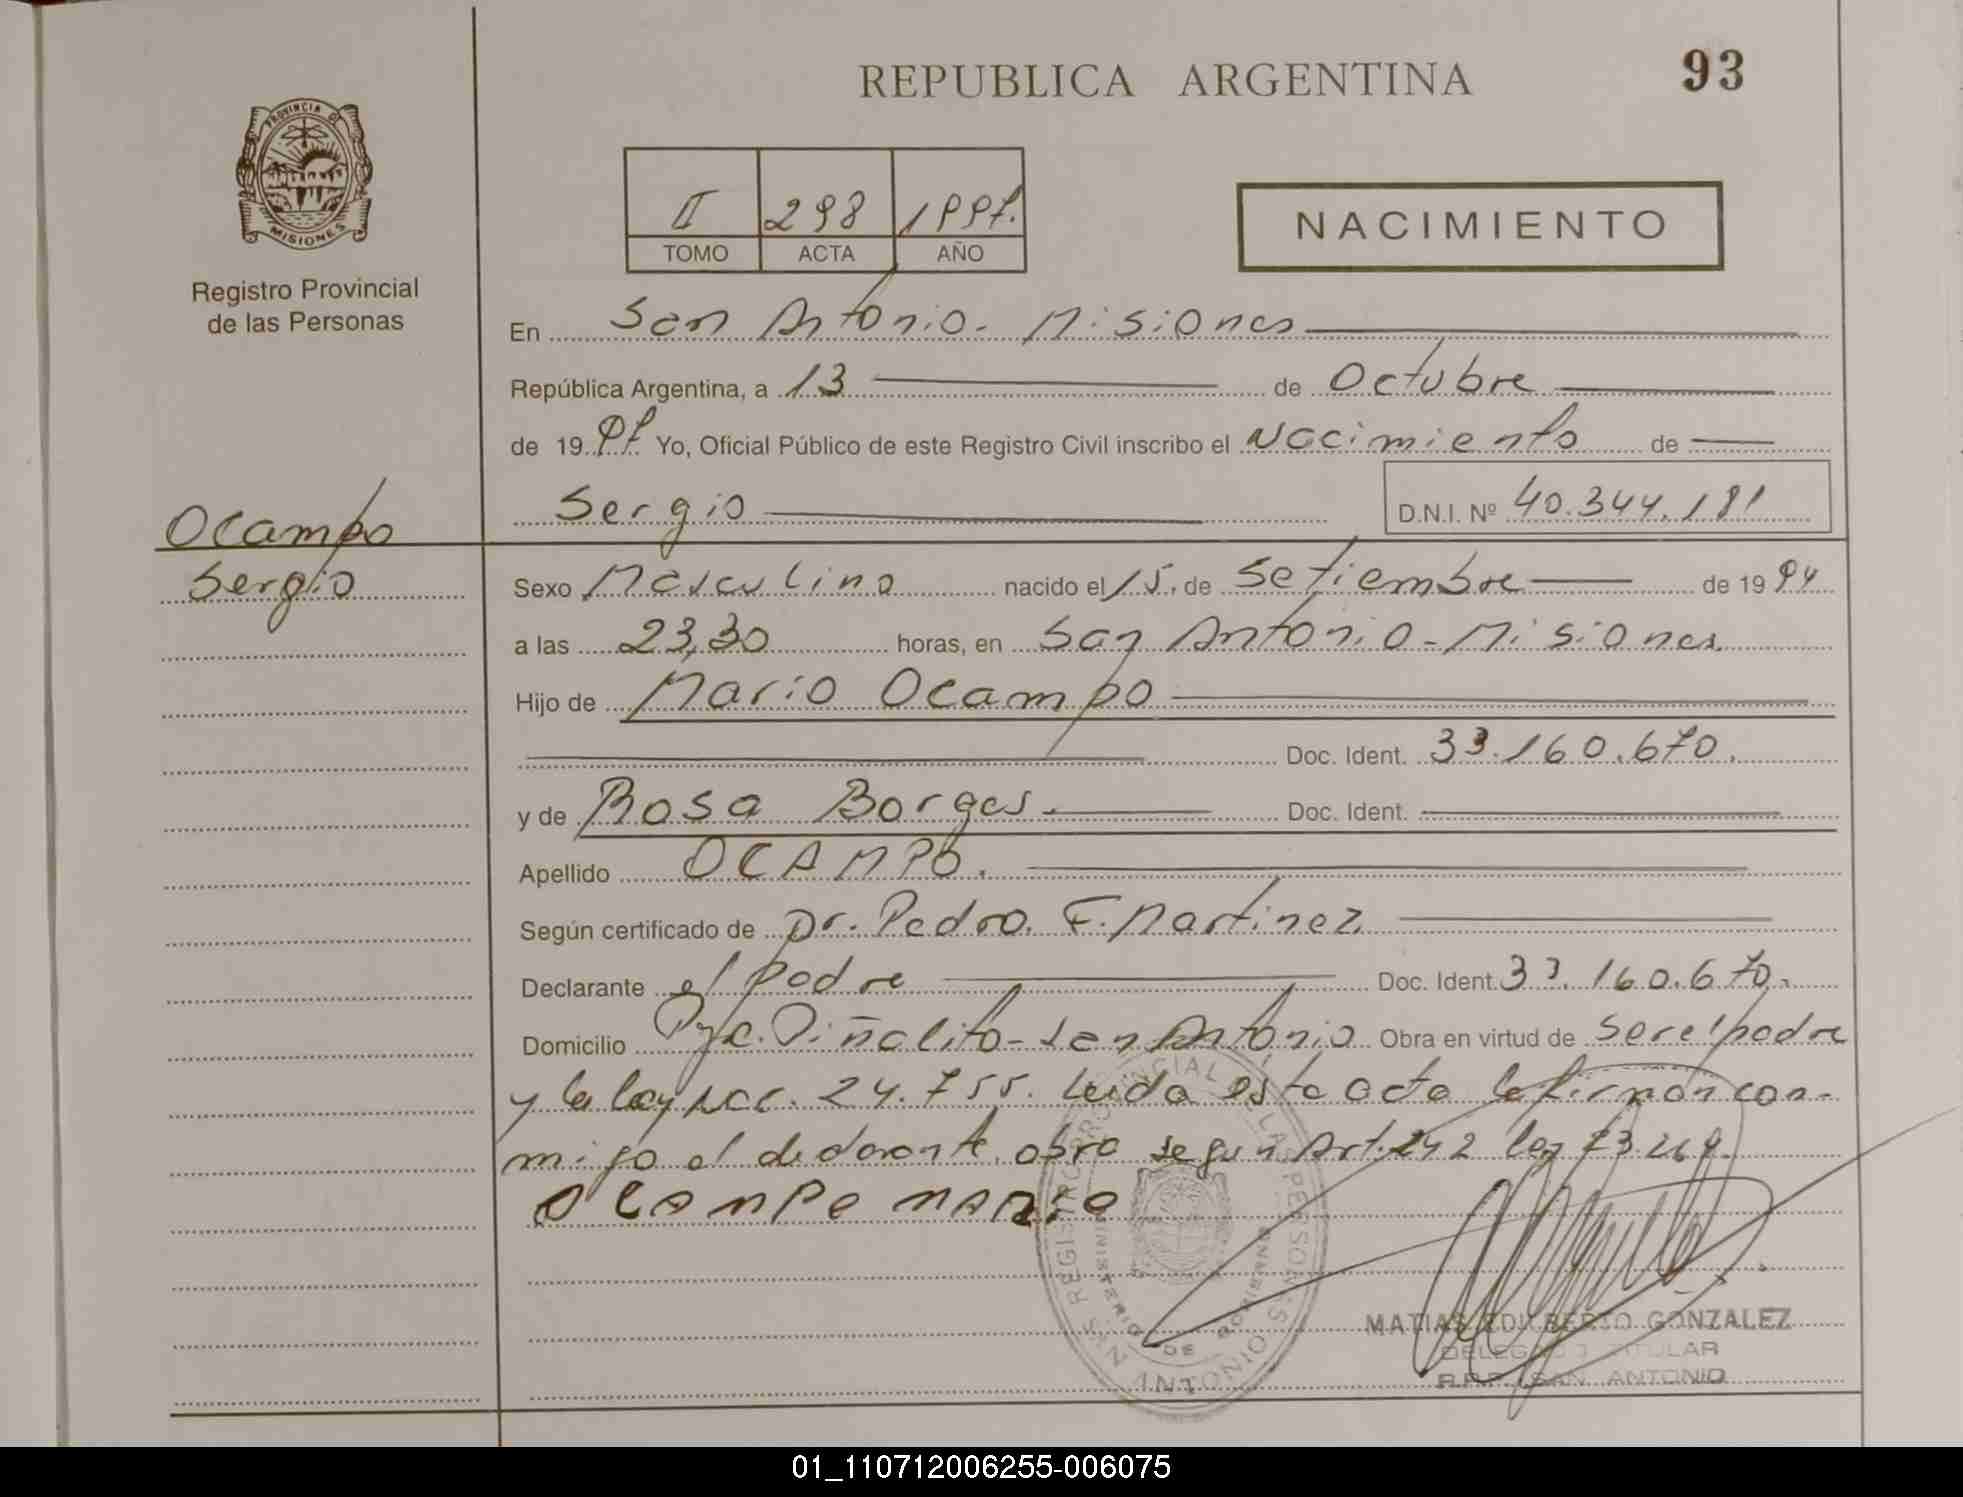 REPUBLICA ARGENTINA
93
PROVINCIA DE
MISIONES
Registro Provincial
de las Personas
II 298 1997.
TOMO ACTA AÑO
NACIMIENTO
En San Antonio - Misiones
República Argentina, a 13 de Octubre
de 1997 Yo, Oficial Público de este Registro Civil inscribo el Nacimiento de
Sergio D.N.I. Nº 40.344.181
Ocampo
Sergio
Sexo Masculino nacido el 15. de Setiembre de 1994
a las 23,30 horas, en San Antonio - Misiones.
Hijo de Mario Ocampo
Doc. Ident. 33.160.670.
y de Rosa Borges. Doc. Ident.
Apellido OCAMPO.
Según certificado de Dr. Pedro F. Martinez
Declarante el padre Doc. Ident. 33.160.670.
Domicilio Pje. Piñalito - San Antonio Obra en virtud de ser el padre
y la ley nac. 24.755. Leida esta acta la firman con-
migo el declarante, obro segun Art. 242 ley
OCAMPO MARIO
REGISTRO PROVINCIAL DE LAS PERSONAS
MINISTERIO DE GOBIERNO
SAN ANTONIO
MATIAS EDILBERTO GONZALEZ
DELEGADO TITULAR
R.P.P. SAN ANTONIO
01_110712006255-006075